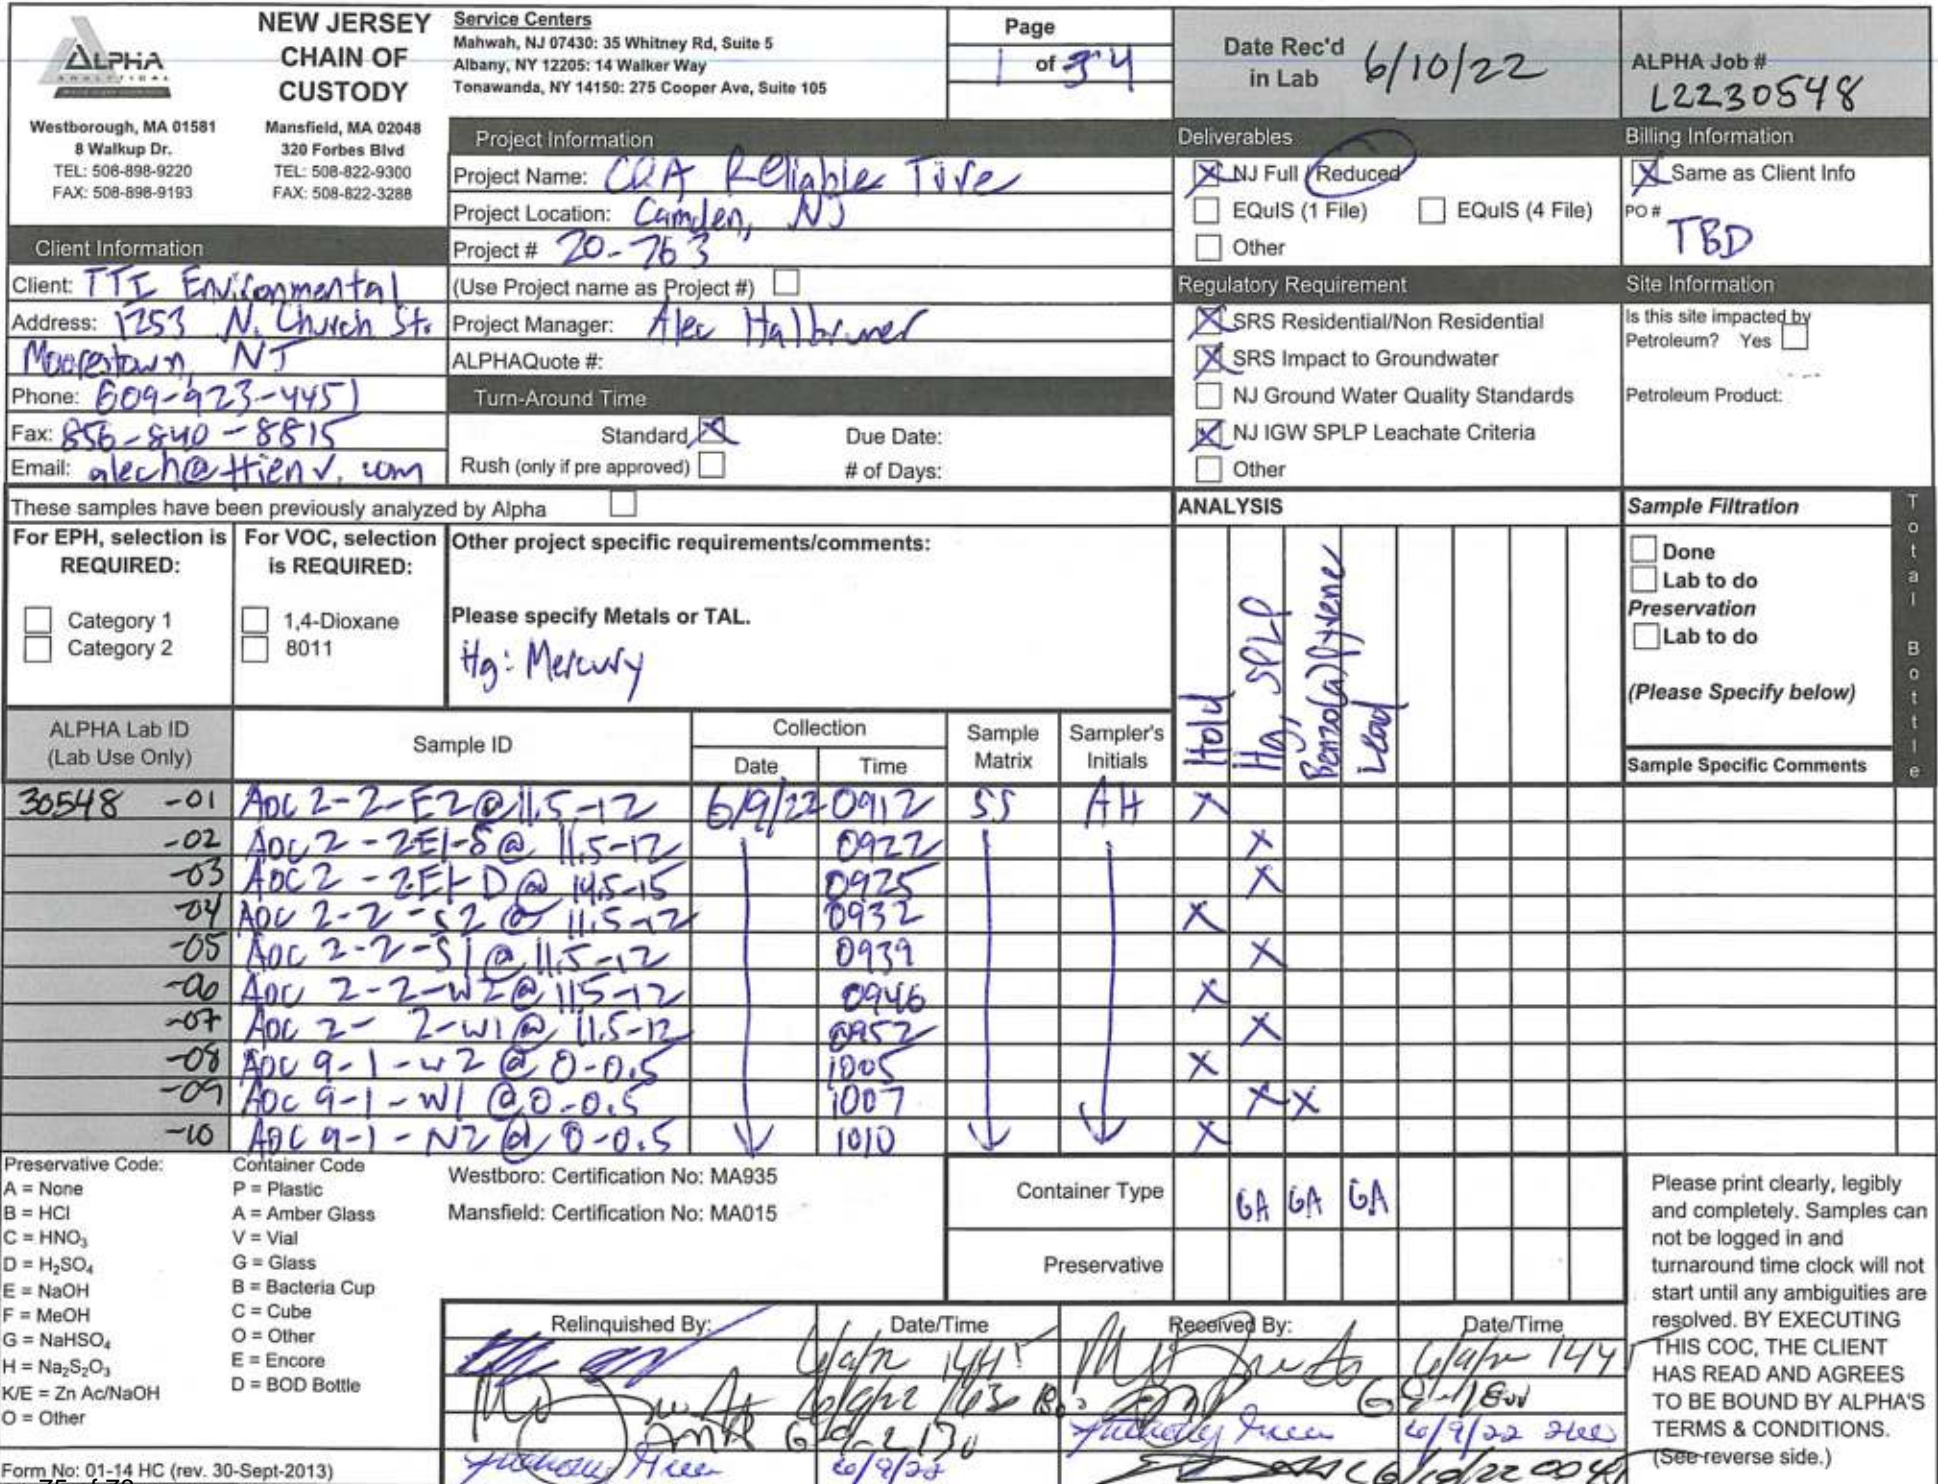 ALPHA
ANALYTICAL
NEW JERSEY
CHAIN OF
CUSTODY
Westborough, MA 01581
8 Walkup Dr.
TEL: 508-898-9220
FAX: 508-898-9193
Mansfield, MA 02048
320 Forbes Blvd
TEL: 508-822-9300
FAX: 508-822-3288
Service Centers
Mahwah, NJ 07430: 35 Whitney Rd, Suite 5
Albany, NY 12205: 14 Walker Way
Tonawanda, NY 14150: 275 Cooper Ave, Suite 105
Page
1 of 4
Date Rec'd
in Lab 6/10/22
ALPHA Job #
L2230548
Project Information
Project Name: CRA Reliable Tire
Project Location: Camden, NJ
Project # 20-763
(Use Project name as Project #)
Project Manager: Alec Halbruner
ALPHAQuote #:
Turn-Around Time
Standard X Due Date:
Rush (only if pre approved) # of Days:
Client Information
Client: TTI Environmental
Address: 1253 N. Church St.
Moorestown, NJ
Phone: 609-923-4451
Fax: 856-840-8815
Email: alech@ttienv.com
Deliverables
X NJ Full / Reduced
EQuIS (1 File) EQuIS (4 File)
Other
Regulatory Requirement
X SRS Residential/Non Residential
X SRS Impact to Groundwater
NJ Ground Water Quality Standards
X NJ IGW SPLP Leachate Criteria
Other
Billing Information
X Same as Client Info
PO #
TBD
Site Information
Is this site impacted by
Petroleum? Yes
Petroleum Product:
These samples have been previously analyzed by Alpha
For EPH, selection is
REQUIRED:
Category 1
Category 2
For VOC, selection
is REQUIRED:
1,4-Dioxane
8011
Other project specific requirements/comments:
Please specify Metals or TAL.
Hg: Mercury
ANALYSIS
Hold
Hg, SPLP
Benzo(a)Pyrene
Lead
Sample Filtration
Done
Lab to do
Preservation
Lab to do
(Please Specify below)
Sample Specific Comments
Total Bottle
ALPHA Lab ID
(Lab Use Only)
Sample ID
Collection
Date Time
Sample
Matrix
Sampler's
Initials
30548 -01 AOC 2-2-E2@11.5-12 6/9/22 0912 SS AH X
-02 AOC 2-2E1-S@ 11.5-12 0922 X
-03 AOC 2-2E1-D@ 14.5-15 0925 X
-04 AOC 2-2-S2 @ 11.5-12 0932 X
-05 AOC 2-2-S1@11.5-12 0939 X
-06 AOC 2-2-W2@11.5-12 0946 X
-07 AOC 2-2-W1@ 11.5-12 0952 X
-08 AOC 9-1-W2 @ 0-0.5 1005 X
-09 AOC 9-1-W1 @0-0.5 1007 X X
-10 AOC 9-1-N2 @ 0-0.5 1010 X
Preservative Code:
A = None
B = HCl
C = HNO₃
D = H₂SO₄
E = NaOH
F = MeOH
G = NaHSO₄
H = Na₂S₂O₃
K/E = Zn Ac/NaOH
O = Other
Container Code
P = Plastic
A = Amber Glass
V = Vial
G = Glass
B = Bacteria Cup
C = Cube
O = Other
E = Encore
D = BOD Bottle
Westboro: Certification No: MA935
Mansfield: Certification No: MA015
Container Type GA GA GA
Preservative
Relinquished By: Date/Time Received By: Date/Time
Anthony Green 6/9/22
Please print clearly, legibly
and completely. Samples can
not be logged in and
turnaround time clock will not
start until any ambiguities are
resolved. BY EXECUTING
THIS COC, THE CLIENT
HAS READ AND AGREES
TO BE BOUND BY ALPHA'S
TERMS & CONDITIONS.
(See reverse side.)
Form No: 01-14 HC (rev. 30-Sept-2013)